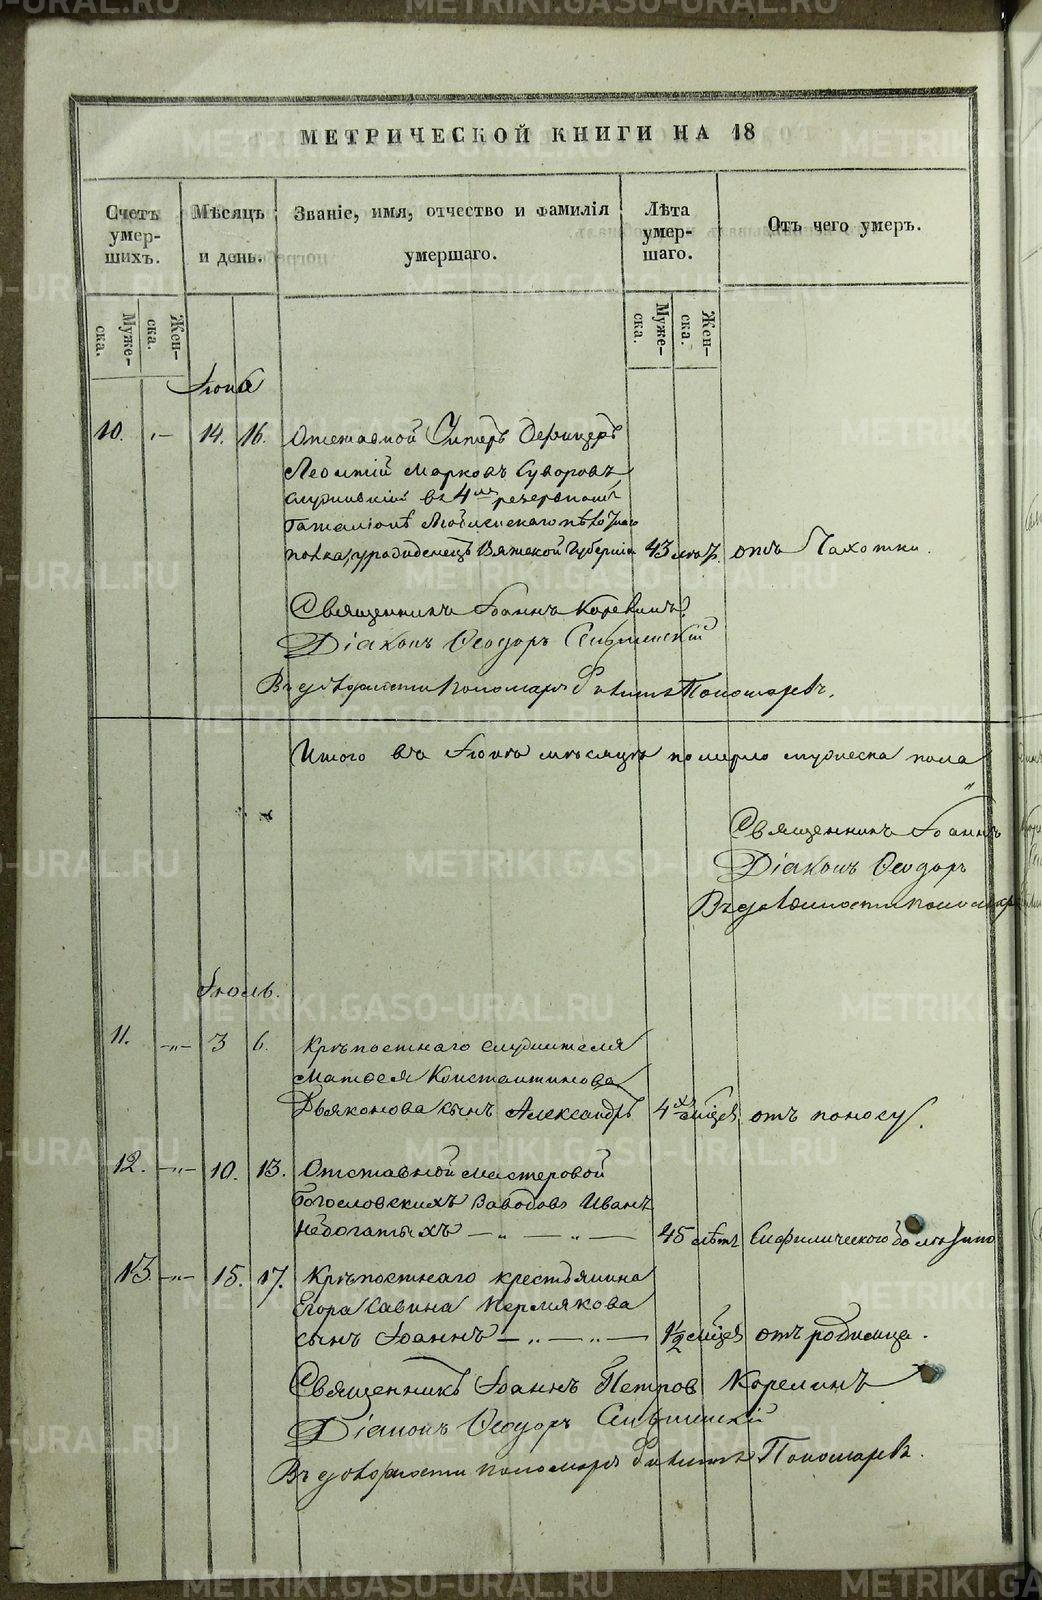 МЕТРИЧЕСКОЙ КНИГИ НА 18
Счетъ умер- шихъ.
Мѣсяцъ и день.
Званіе, имя, отчество и фамилія умершаго.
Лѣта умер- шаго.
Отъ чего умеръ.
Муже- ска.
Жен- ска.
Муже- ска.
Жен- ска.
Іюнь
10. „— 14. 16. Отставной Унтеръ Офицеръ
Леонтій Марковъ Суворовъ
служившій въ 4мъ резервномъ
баталіонѣ пѣхотнаго
полка, урожденецъ Вятской Губерніи 43 лѣтъ. отъ Чахотки.
Священникъ Іоаннъ Корелинъ
Діаконъ Ѳеодоръ
Въ должности пономаря Пономаревъ.
Итого въ Іюнѣ мѣсяцѣ померло мужеска пола
Священникъ Іоаннъ
Діаконъ Ѳеодоръ
Въ должности пономар
Іюль.
11. —„— 3 6. Крѣпостнаго служителя
Матѳея Константинова
Дьяконова сынъ Александръ 4хъ мѣсяц. отъ поносу.
12. —„— 10. 13. Отставной мастеровой
Богословскихъ Заводовъ Иванъ
Небогатыхъ —„—„— 45 лѣтъ Сифилическою болѣзнію
13. —„— 15. 17. Крѣпостнаго крестьянина
Егора Савина Пермякова
сынъ Іоаннъ —„—„— 1½ мѣсяц. отъ родимца.
Священникъ Іоаннъ Петровъ Корелинъ
Діаконъ Ѳеодоръ
Въ должности пономаря Пономаревъ.
METRIKI.GASO-URAL.RU